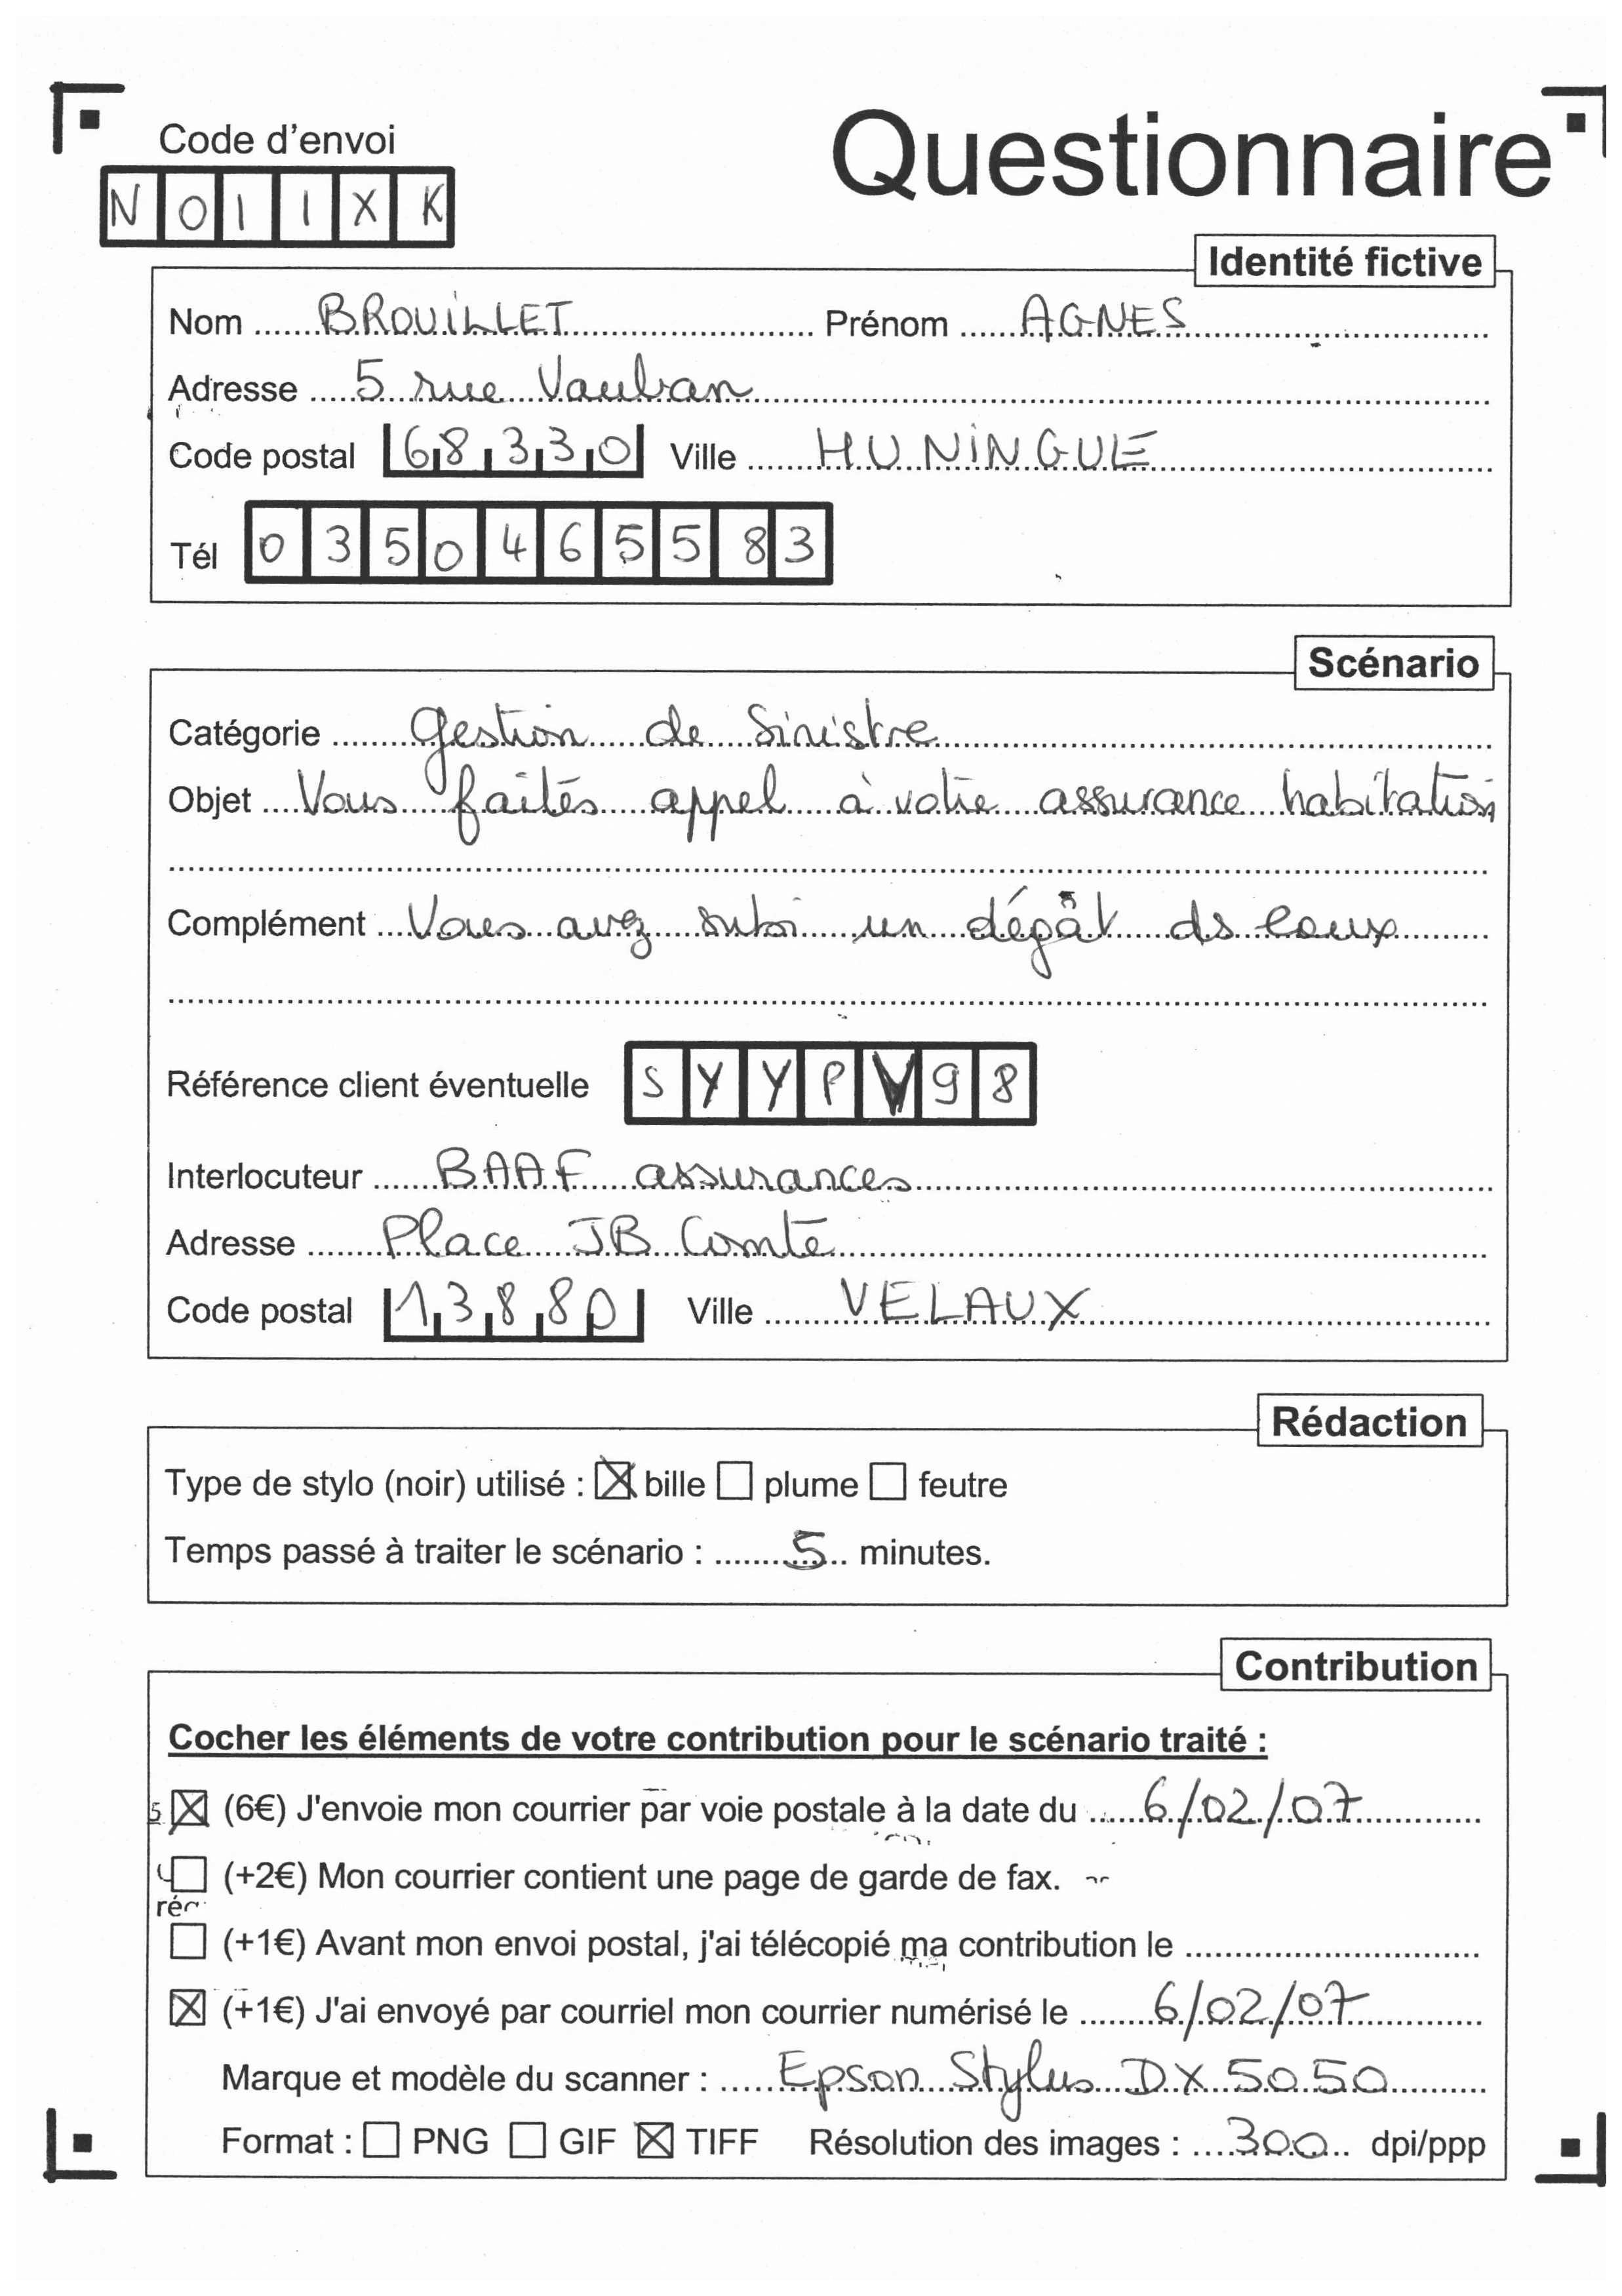 Code d'envoi
Questionnaire
NO11XK
Identité fictive
Nom BROUILLET Prénom AGNES
Adresse 5 rue Vauban
Code postal 68330 Ville HUNINGUE
Tél 0350465583
Scénario
Catégorie Gestion de Sinistre
Objet Vous faites appel à votre assurance habitation
Complément Vous avez subi un dégât ds eaux
Référence client éventuelle SYYPV98
Interlocuteur BAAF assurances
Adresse Place JB Comte
Code postal 13880 Ville VELAUX
Rédaction
Type de stylo (noir) utilisé : ☒ bille ☐ plume ☐ feutre
Temps passé à traiter le scénario : 5 minutes.
Contribution
Cocher les éléments de votre contribution pour le scénario traité :
☒ (6€) J'envoie mon courrier par voie postale à la date du 6/02/07
☐ (+2€) Mon courrier contient une page de garde de fax.
☐ (+1€) Avant mon envoi postal, j'ai télécopié ma contribution le
☒ (+1€) J'ai envoyé par courriel mon courrier numérisé le 6/02/07
Marque et modèle du scanner : Epson Stylus DX 5050
Format : ☐ PNG ☐ GIF ☒ TIFF Résolution des images : 300 dpi/ppp